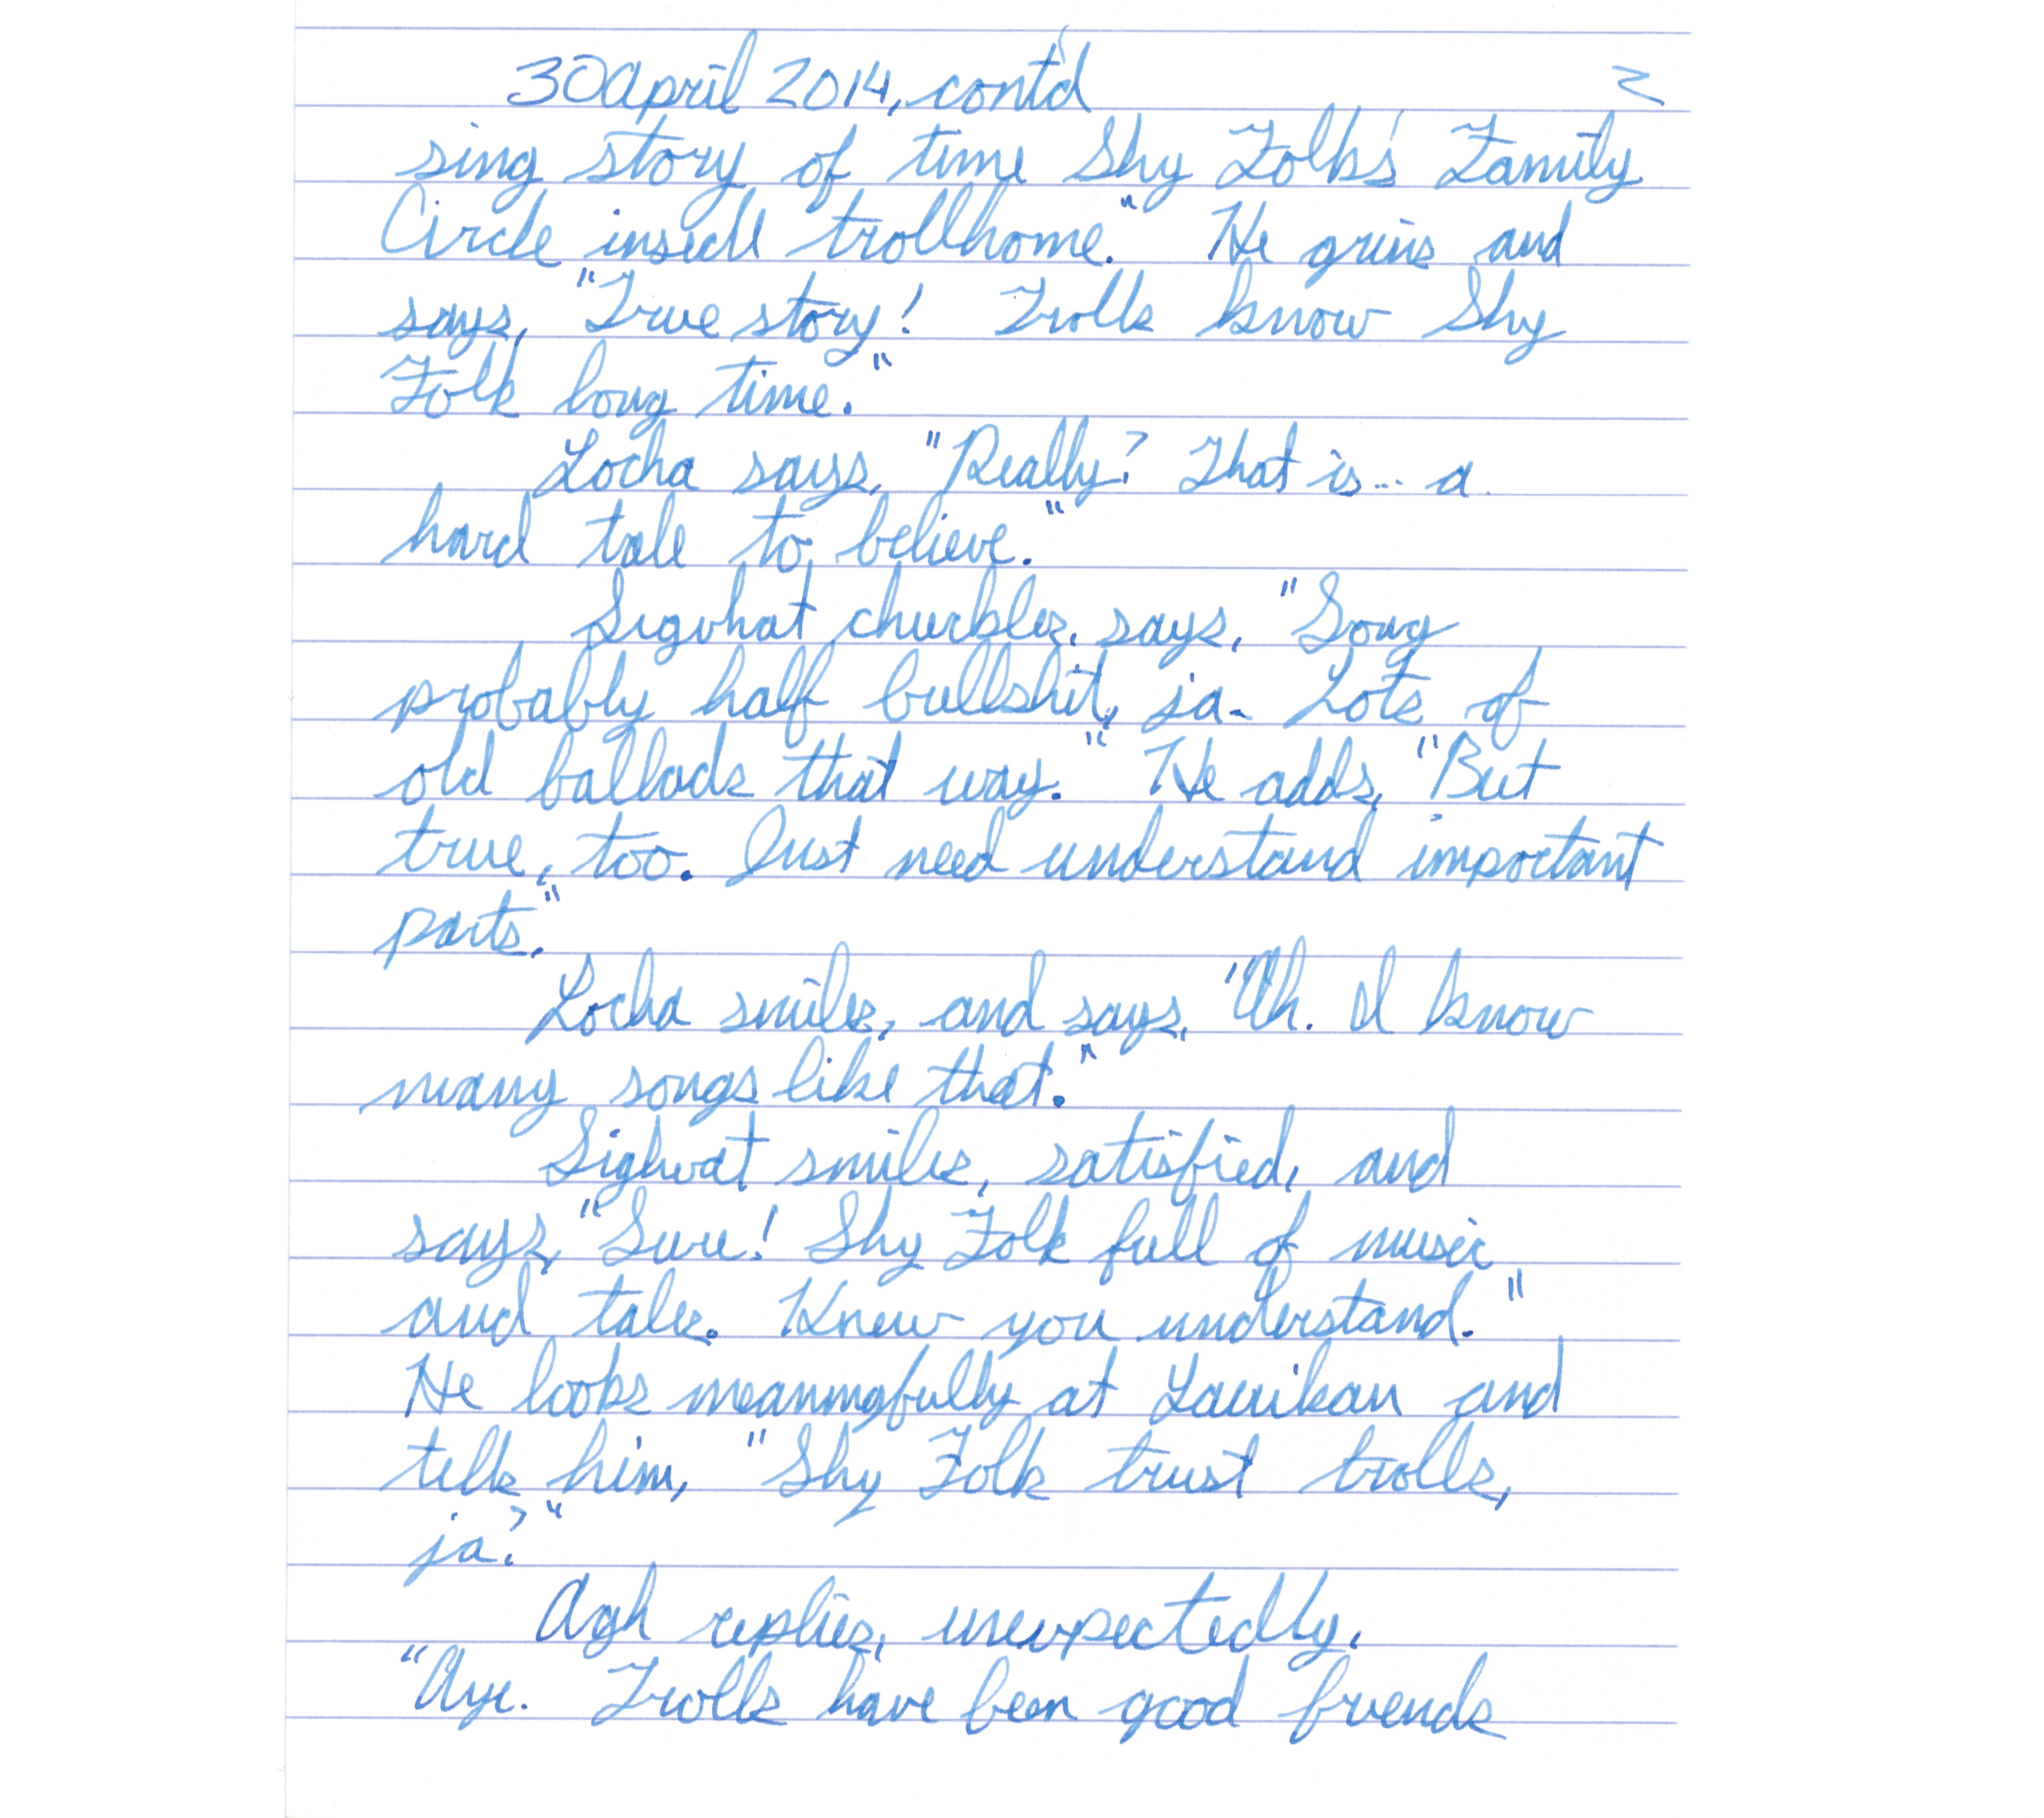 30 April 2014, cont'd 2
sing story of time Shy Folk's Family
Circle inside trollhome." He grins and
says, "True story! Trolls know Shy
Folk long time."
Locha says, "Really? That is... a
hard tale to believe."
Sigvhat chuckles, says, "Song
probably half bullshit, ja. Lots of
old ballads that way." He adds, "But
true, too. Just need understand important
parts."
Locha smiles, and says, "Ah. I know
many songs like that."
Sighvat smiles, satisfied, and
says, "Sure! Shy Folk full of music
and tales. Knew you understand."
He looks meaningfully at Laurikan and
tells him, "Shy Folk trust trolls,
ja?"
Agh replies, unexpectedly,
"Aye. Trolls have been good friends